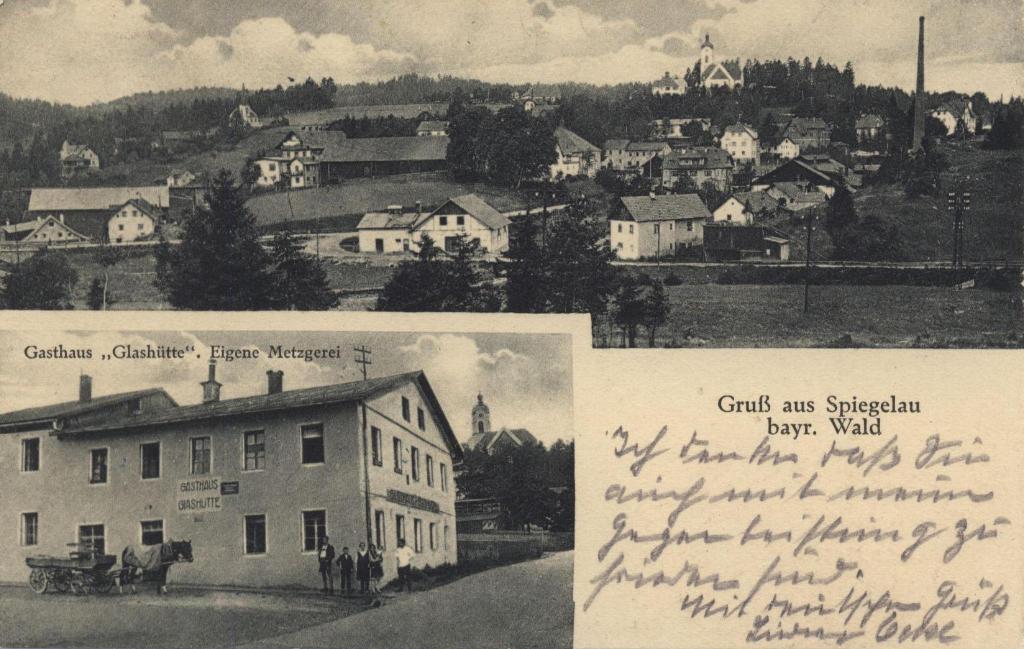 Gasthaus „Glashütte“. Eigene Metzgerei
GASTHAUS
GLASHÜTTE
Gruß aus Spiegelau
bayr. Wald
Ich denke daß Sie
auch mit meine
Gegenleistung zu
frieden sind.
Mit deutschen Gruß